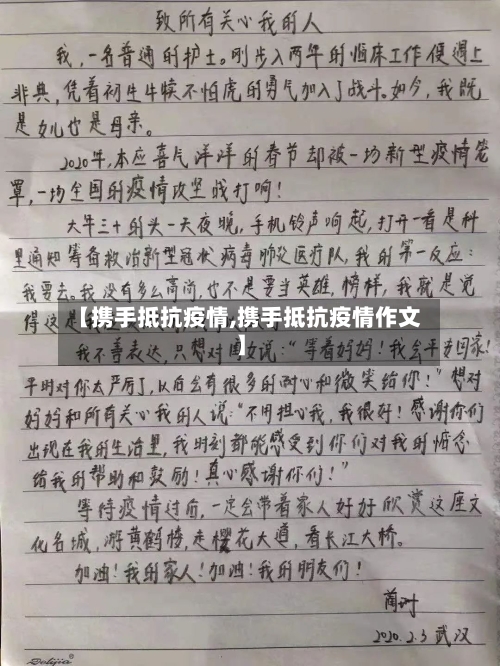 致所有关心我的人
我,一名普通的护士。刚步入两年的临床工作便遇上
非典,凭着初生牛犊不怕虎的勇气加入了战斗。如今,我既
是女儿也是母亲。
2020年,本应喜气洋洋的春节却被一场新型疫情笼
罩,一场全国的疫情攻坚战打响!
大年三十的头一天夜晚,手机铃声响起,打开一看是科
里通知筹备救治新型冠状病毒肺炎医疗队,我的第一反应:
我要去。我没有多么高尚,也不是要当英雄,榜样,我就是觉
得这是
【携手抵抗疫情,携手抵抗疫情作文
】
我不善表达,只想对女说:“等着妈妈!我会平安回家!
平时对你太严厉了,以后会有很多的耐心和微笑给你!”想对
妈妈和所有关心我的人说:“不用担心我,我很好!感谢你们
出现在我的生活里,我时刻都能感受到你们对我的惦念
给我的帮助和鼓励!真心感谢你们!”
等待疫情过后,一定会带着家人好好欣赏这座文
化名城,游黄鹤楼,走樱花大道,看长江大桥。
加油!我的家人!加油!我的朋友们!
2020.2.3 武汉